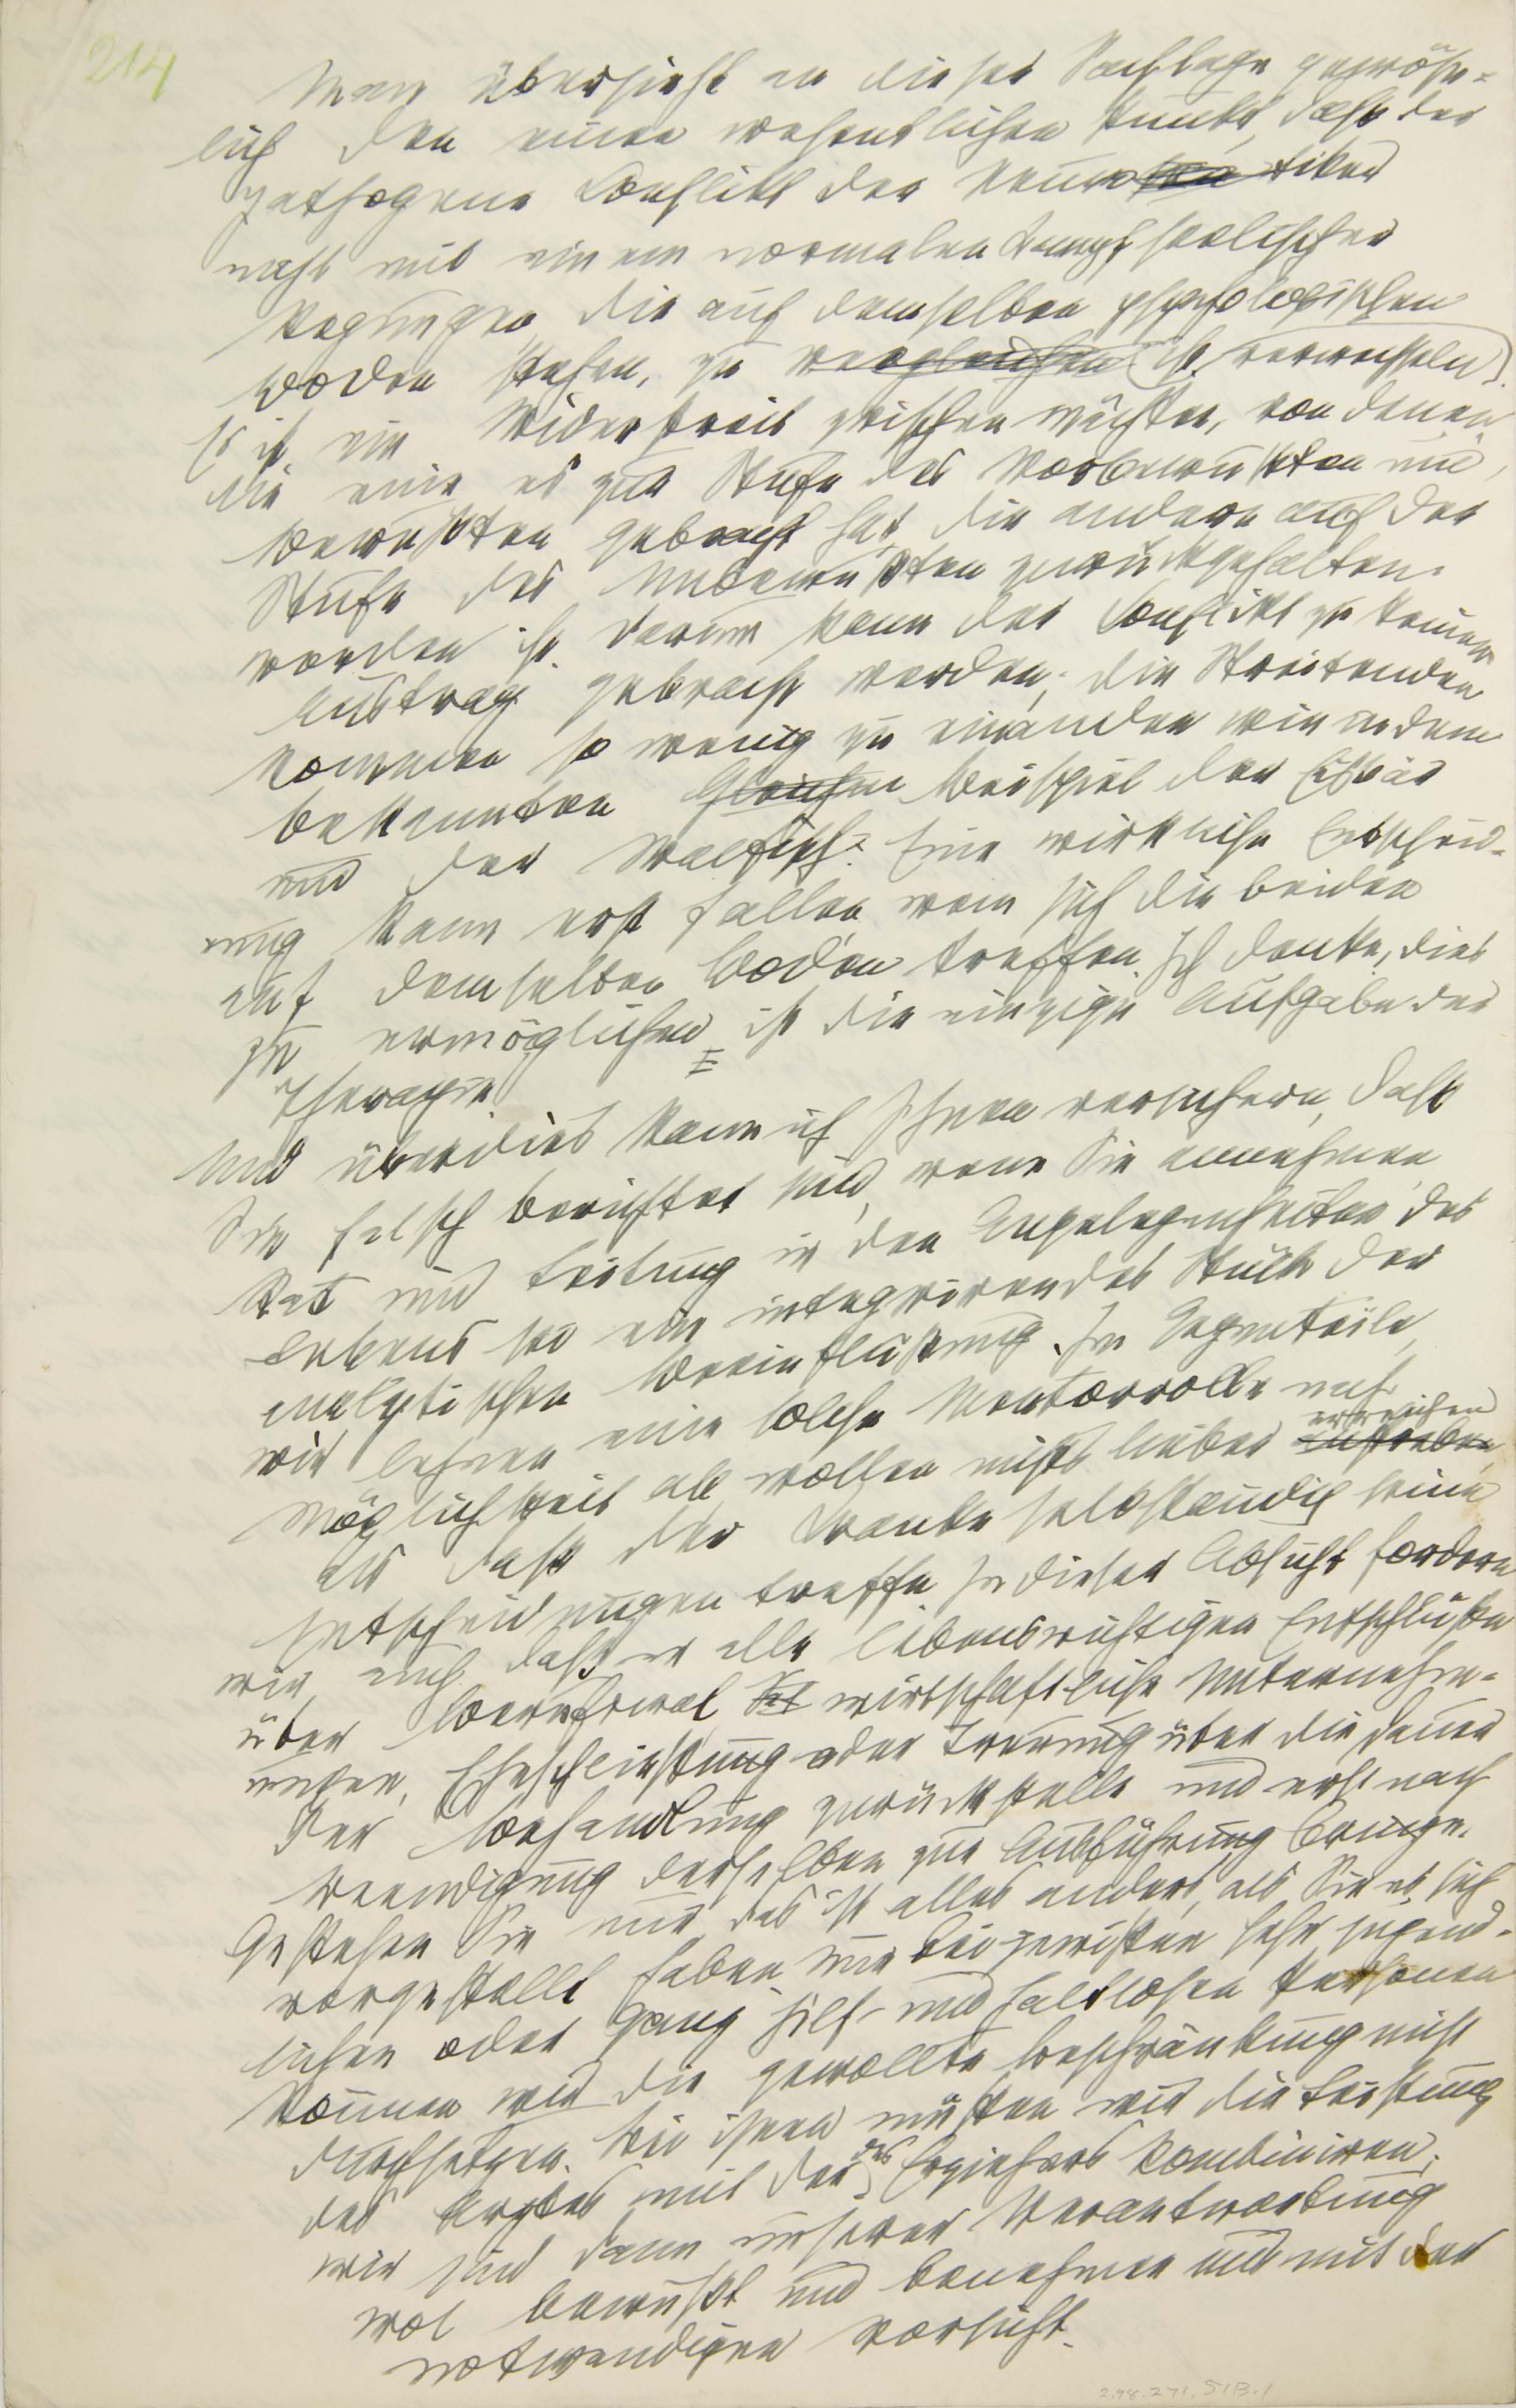 214
Man übersieht an dieser Sachlage gewöhn-
lich den einen wesentlichen Punkt, daß der
pathogene Conflikt der Neurotiker
nicht mit einem normalen Kampf seelischer
Regungen, die auf demselben psychologischen
Boden stehen, zu vergleichen ist verwechseln).
Es ist ein Widerstreit zwischen Mächten, von denen
die eine es zur Stufe des Vorbewußten und
Bewußten gebracht hat, die andere auf der
Stufe des Unbewußten zurückgehalten
worden ist. Darum kann der Conflikt zu keinem
Austrag gebracht werden; die Streitenden
kommen so wenig zu einander wie in dem
bekannten Beispiel der Eisbär
und der Walfisch. Eine wirkliche Entscheid-
ung kann erst fallen, wenn sich die beiden
auf demselben Boden treffen. Ich denke, dies
zu ermöglichen ist die einzige Aufgabe der
Therapie
Und überdies kann ich Ihnen versichern, daß
Sie falsch berichtet sind, wenn Sie annehmen,
Rat und Leitung in den Angelegenheiten des
Lebens sei ein integrirendes Stück der
analytischen Beeinflußung. Im Gegenteile,
wir lehnen eine solche Mentorrolle nach
erreichen
Möglichkeit ab, wollen nichts lieber anstreben
als daß der Kranke selbständig seine
Entscheidungen treffe. In dieser Absicht fordern
wir auch, daß er alle lebenswichtigen Entschlüße
über Berufswal, wirtschaftliche Unternehm-
ungen, Eheschließung oder Trennung über die Dauer
der Behandlung zurückstelle und erst nach
Beendigung derselben zur Ausführung bringe.
Gestehen Sie nur, das ist alles anders, als Sie es sich
vorgestellt haben. Nur bei gewißen sehr jugend-
lichen oder ganz hilf- und haltlosen Personen
können wir die gewollte Beschränkung nicht
durchsetzen. Bei ihnen müßen wir die Leistung
des Arztes mit der des Erziehers kombiniren;
wir sind dann unserer Verantwortung
wol bewußt und benehmen uns mit der
notwendigen Vorsicht.
2.98.271.51B.1